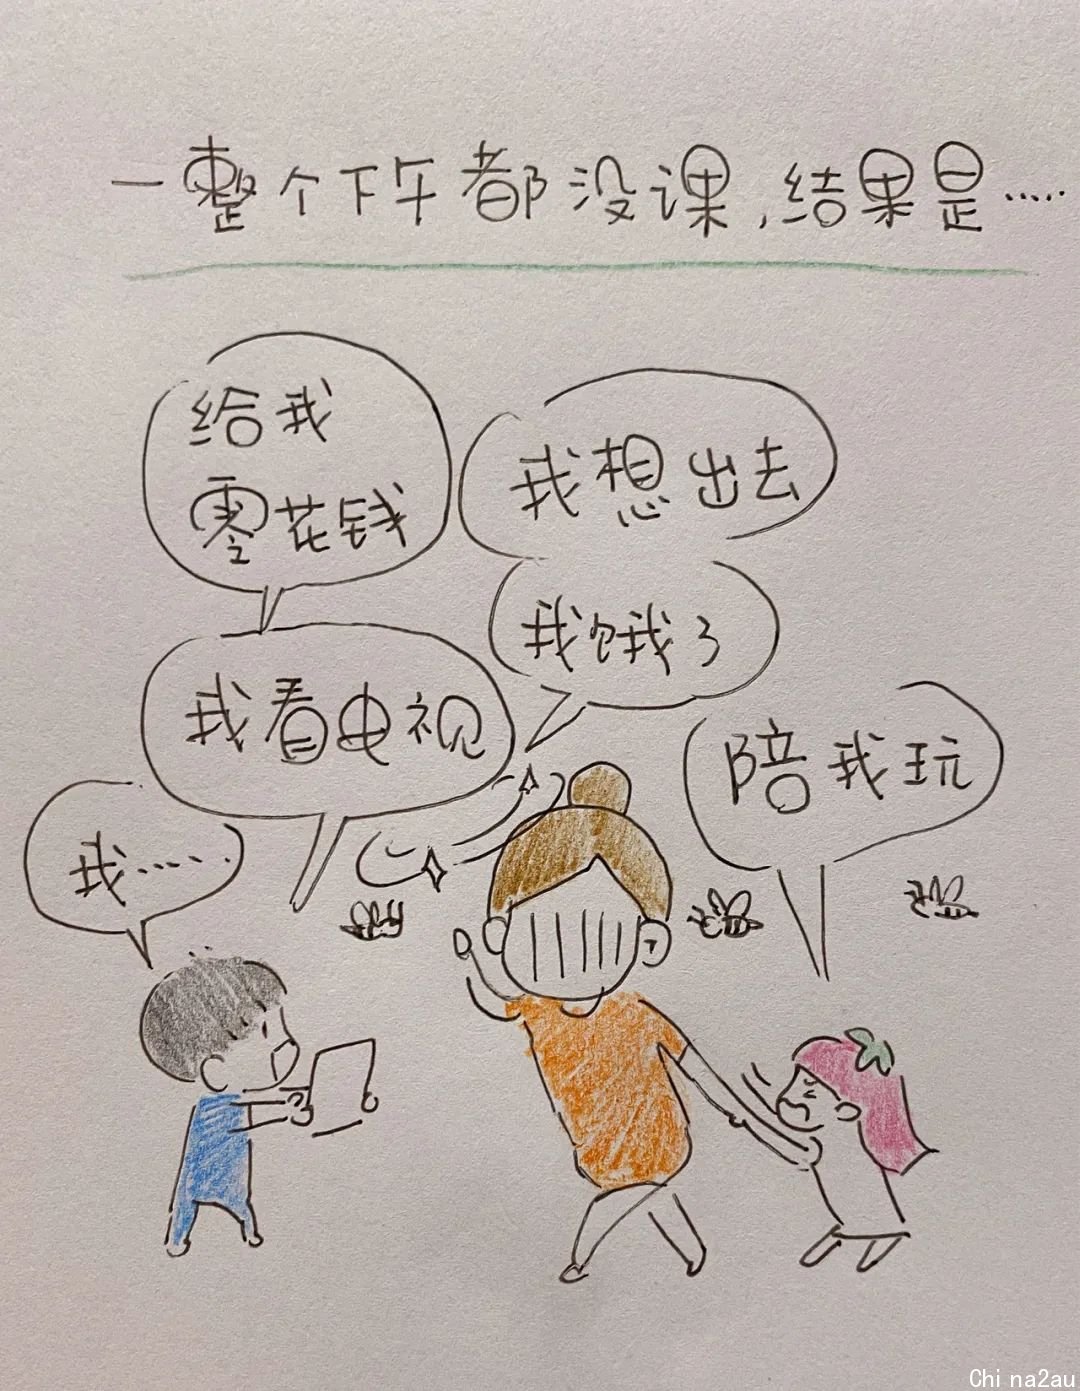 一整个下午都没课,结果是……
给我
零花钱
我想出去
我饿了
我看电视
陪我玩
我……
Chi na2au